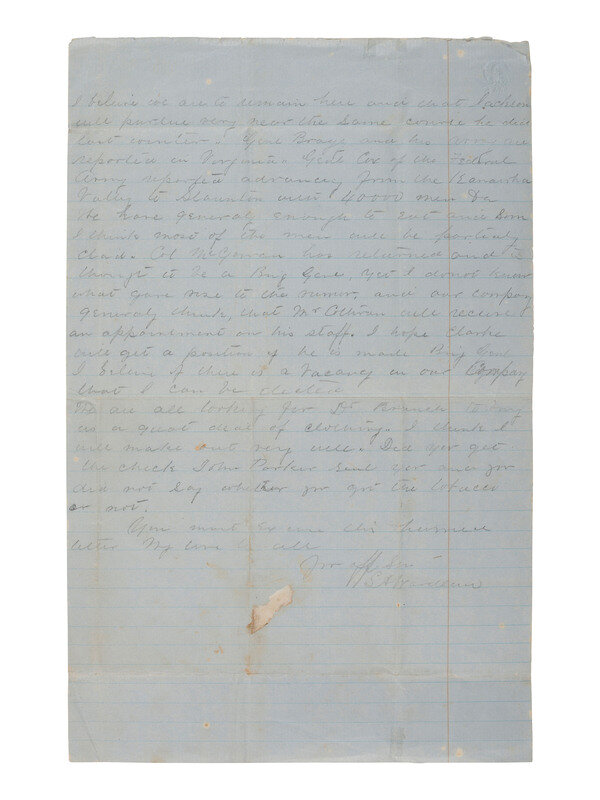 I believe we are to remain here and that Jackson
will pursue very near the same course he did
last winter. Genl Bragg and his army are
reported in Virginia. Genl Cox of the Federal
Army reported advancing from the Kanawha
Vally to Staunton with 40000 men
We have generally enough to Eat and Soon
I think most of the men will be partialy
clad. Col McGowan has returned and is
thought to be a Brig Genl, yet I do not know
what gave rise to the rumor, and our company
generaly think, that Mr Cothran will receive
an appointment on his staff. I hope Clarke
will get a position if he is made Brig Genl
I believe if there is a vacancy in our Company
that I can be elected
We are all looking for Dr Branch to bring
us a great deal of clothing. I think I
will make out very well. Did you get
the check John Parker sent you and you
did not say whether you got the tobacco
or not.
You must Excuse this hurried
letter My love to all
Yor aff Son